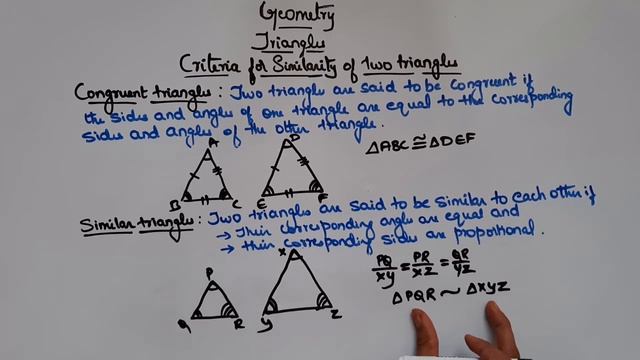 Geometry
Triangles
Criteria for Similarity of Two triangles
Congruent triangles : Two triangles are said to be congruent if
the sides and angles of one triangle are equal to the corresponding
sides and angles of the other triangle.
A D
△ABC ≅ △DEF
B C E F
Similar triangles : Two triangles are said to be similar to each other if
→ Their corresponding angles are equal and
→ their corresponding sides are proportional.
X
PQ/XY = PR/XZ = QR/YZ
P
△PQR ~ △XYZ
Q R Y Z